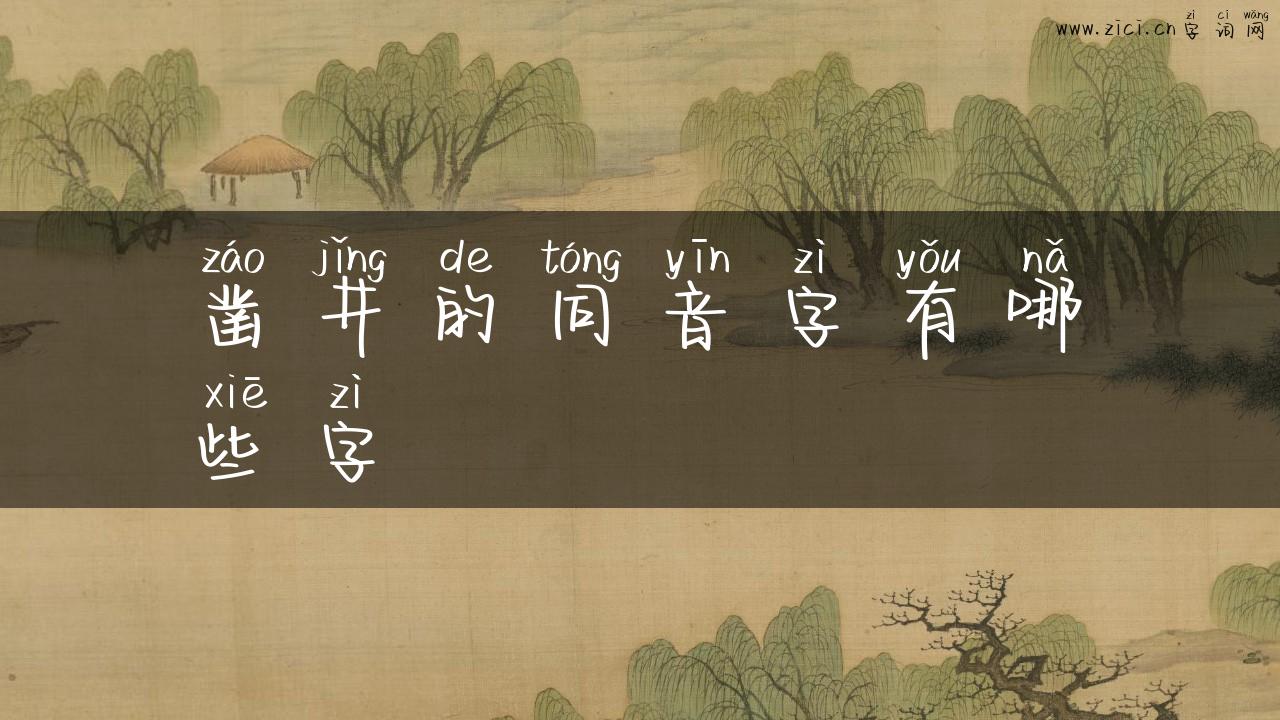 zì cí wǎng
www.zici.cn 字词网
záo jǐng de tóng yīn zì yǒu nǎ
凿井的同音字有哪
xiē zì
些字